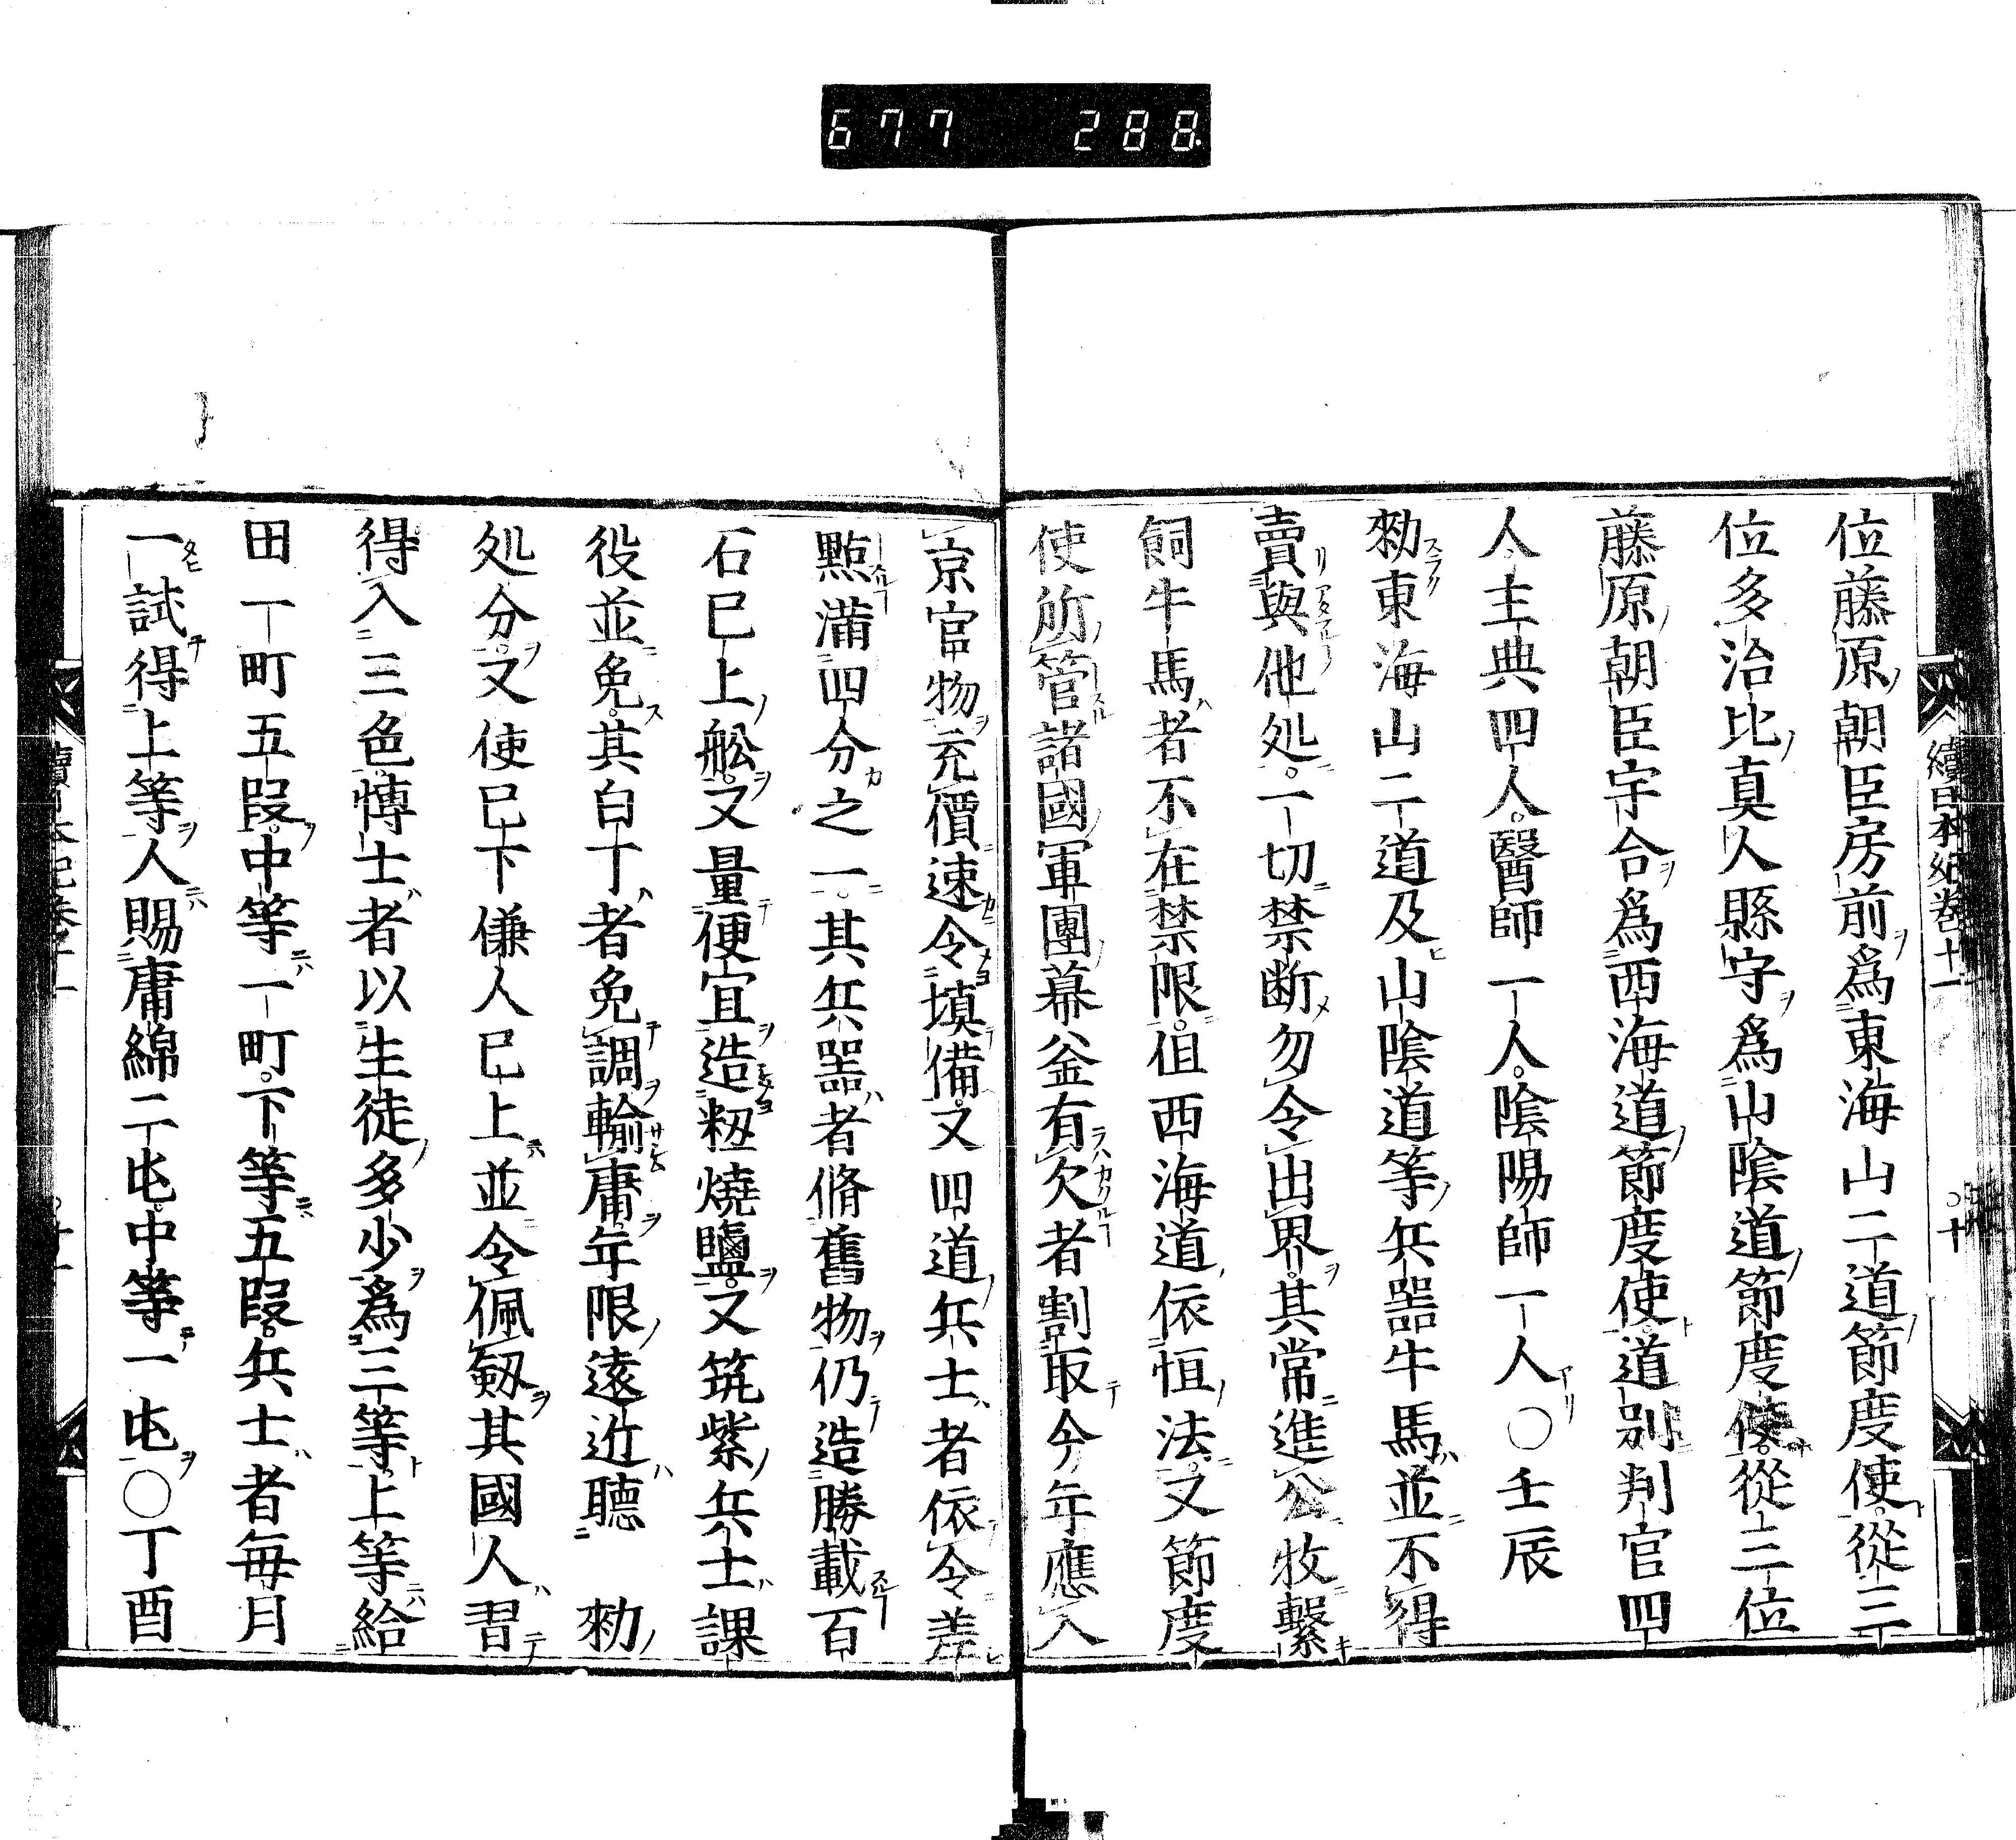 677 288
續日本紀卷十一 ○十
位藤原朝臣房前爲東海山二道節度使。從三
位多治比真人縣守爲山陰道節度使。從三位
藤原朝臣宇合爲西海道節度使。道别判官四
人主典四人。醫師一人。陰陽師一人○壬辰
勑東海山二道及山陰道等兵器牛馬並不得
賣與他処。一切禁断勿令出界。其常進公牧繫
飼牛馬者不在禁限。但西海道依恒法。又節度
使所管諸國軍團幕釜有欠者割取今年應入
京官物充價速令填備。又四道兵士者依令差
點滿四分之一。其兵器者脩舊物仍造勝載百
石已上舩。又量便宜造籾燒鹽。又筑紫兵士課
役並免。其白丁者免調輸庸。年限遠近聽 勑
処分。又使已下傔人已上並令佩剱其國人習
得入三色博士者以生徒多少爲三等。上等給
田一町五段。中等一町。下等五段。兵士者每月
一試得上等人賜庸綿二屯。中等一屯○丁酉